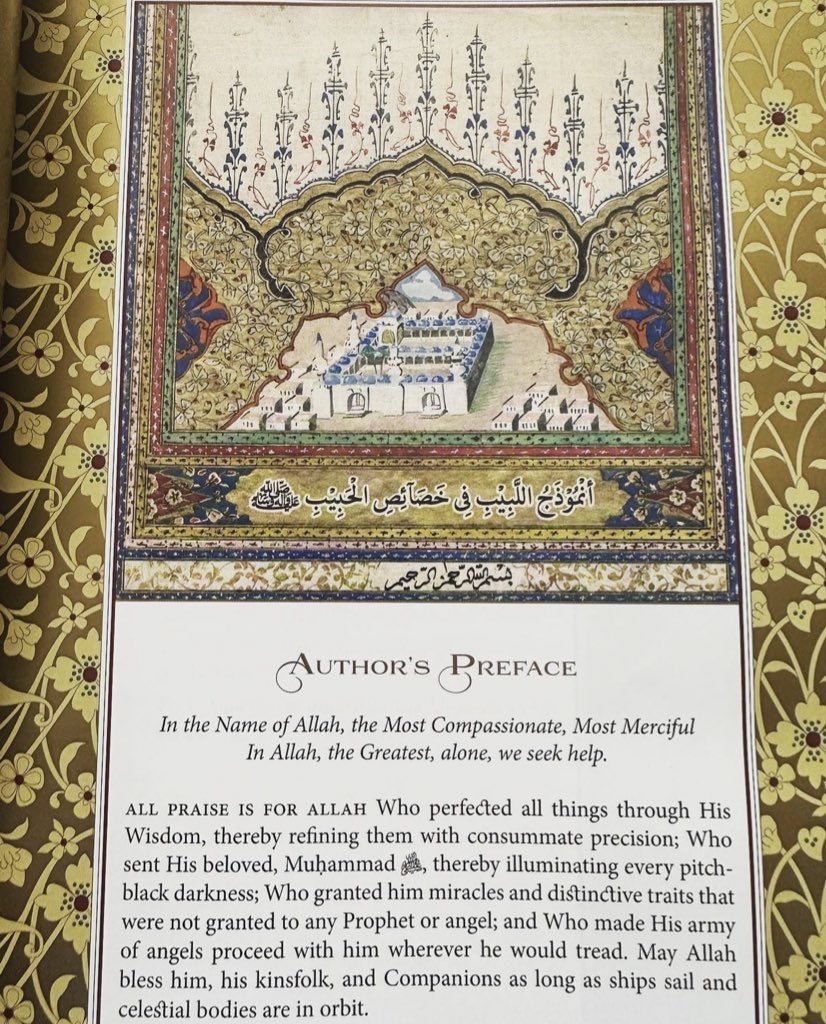 أُنْمُوْذَجُ اللَّبِيْبِ فِي خَصَآئِصِ الْحَبِيْبِ ﷺ
بسم الله الرحمن الرحيم
AUTHOR'S PREFACE
In the Name of Allah, the Most Compassionate, Most Merciful
In Allah, the Greatest, alone, we seek help.
ALL PRAISE IS FOR ALLAH Who perfected all things through His
Wisdom, thereby refining them with consummate precision; Who
sent His beloved, Muḥammad ﷺ, thereby illuminating every pitch-
black darkness; Who granted him miracles and distinctive traits that
were not granted to any Prophet or angel; and Who made His army
of angels proceed with him wherever he would tread. May Allah
bless him, his kinsfolk, and Companions as long as ships sail and
celestial bodies are in orbit.